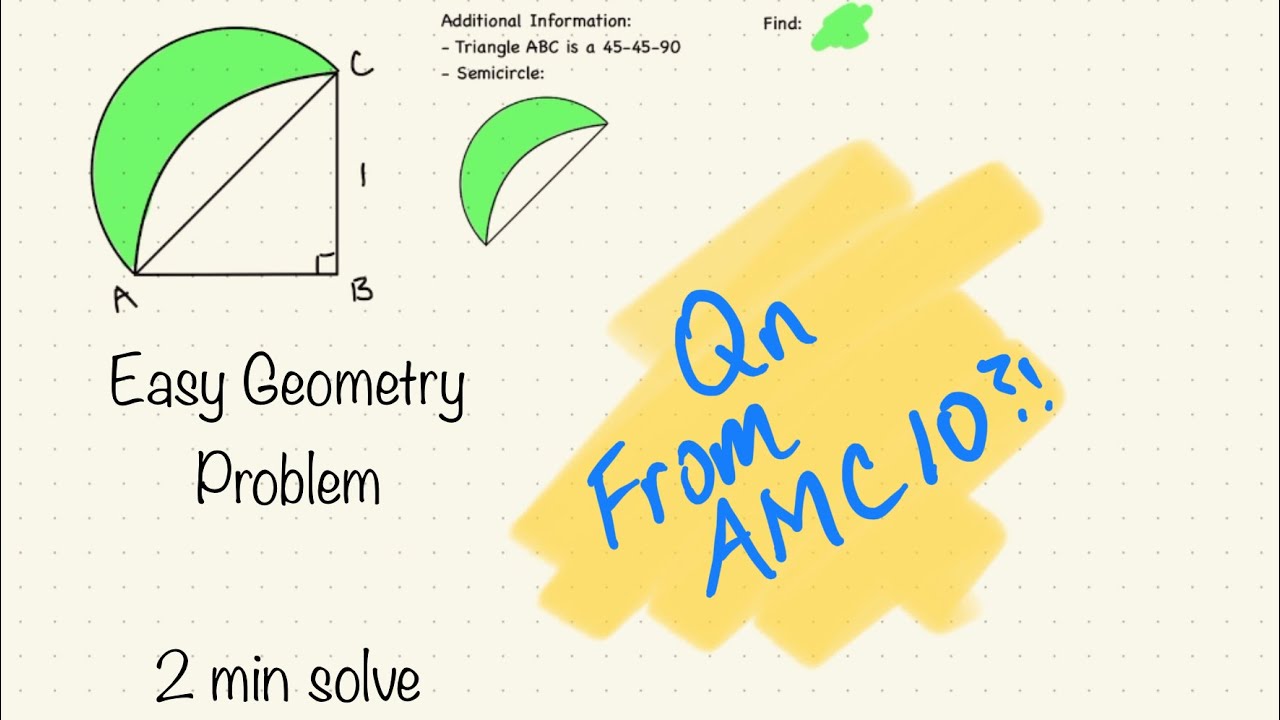 Additional Information:
Find:
- Triangle ABC is a 45-45-90
- Semicircle:
C
1
A
B
Easy Geometry
Problem
2 min solve
Qn
From
AMC 10?!